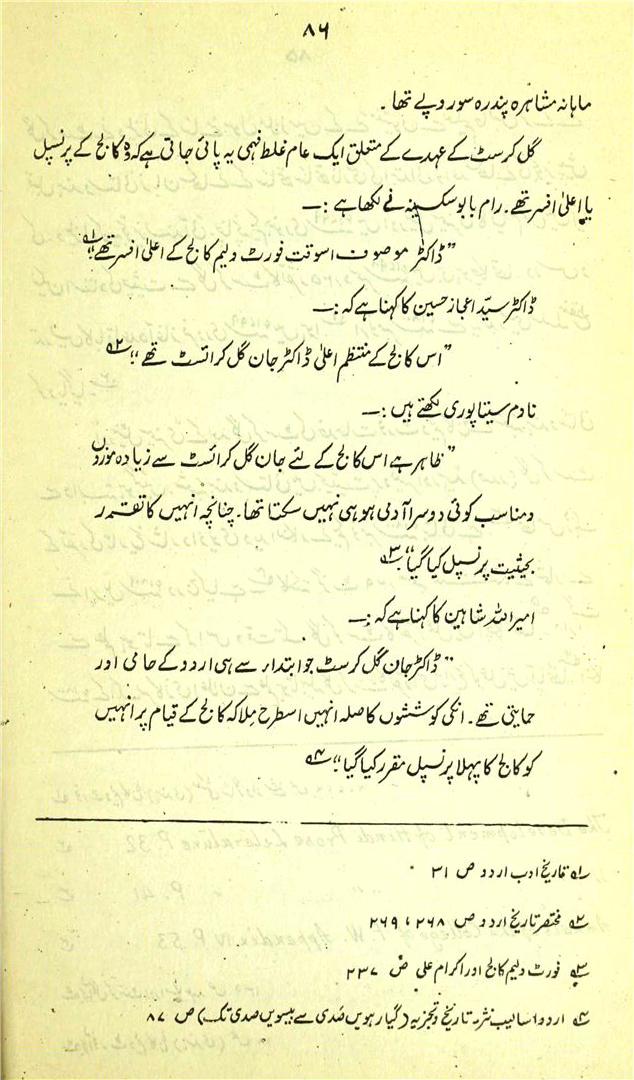 ۸۶
ماہانہ مشاہرہ پندرہ سو روپے تھا ۔
گل کرسٹ کے عہدے کے متعلق ایک عام غلط فہمی یہ پائی جاتی ہے کہ وہ کالج کے پرنسپل
یا اعلیٰ افسر تھے ۔ رام بابو سکسینہ نے لکھا ہے :۔
"ڈاکٹر موصوف اسوقت فورٹ ولیم کالج کے اعلیٰ افسر تھے" ۱؎
ڈاکٹر سیّد اعجاز حسین کا کہنا ہے کہ :۔
"اس کالج کے منتظم اعلیٰ ڈاکٹر جان گل کرائسٹ تھے" ۲؎
نادم سیتاپوری لکھتے ہیں :۔
"ظاہر ہے اس کالج کے لئے جان گل کرائسٹ سے زیادہ موزوں
ومناسب کوئی دوسرا آدمی ہو ہی نہیں سکتا تھا ۔ چنانچہ انہیں کا تقرر
بحیثیت پرنسپل کیا گیا" ۳؎
امیر اللہ شاہین کا کہنا ہے کہ :۔
"ڈاکٹر جان گل کرسٹ جو ابتدار سے ہی اردو کے حامی اور
حمایتی تھے ۔ انکی کوششوں کا صلہ انہیں اسطرح مِلا کہ کالج کے قیام پر انہیں
کو کالج کا پہلا پرنسپل مقرر کیا گیا" ۴؎
۱؎ تاریخ ادب اردو ص ۳۱
۲؎ مختصر تاریخ اردو ص ۲۶۸ ، ۲۶۹
۳؎ فورٹ ولیم کالج اور اکرام علی ص ۲۳۷
۴؎ اردو اسالیب نثر ۔ تاریخ و تجزیہ (گیارہویں صدی سے بیسویں صدی تک) ص ۸۷